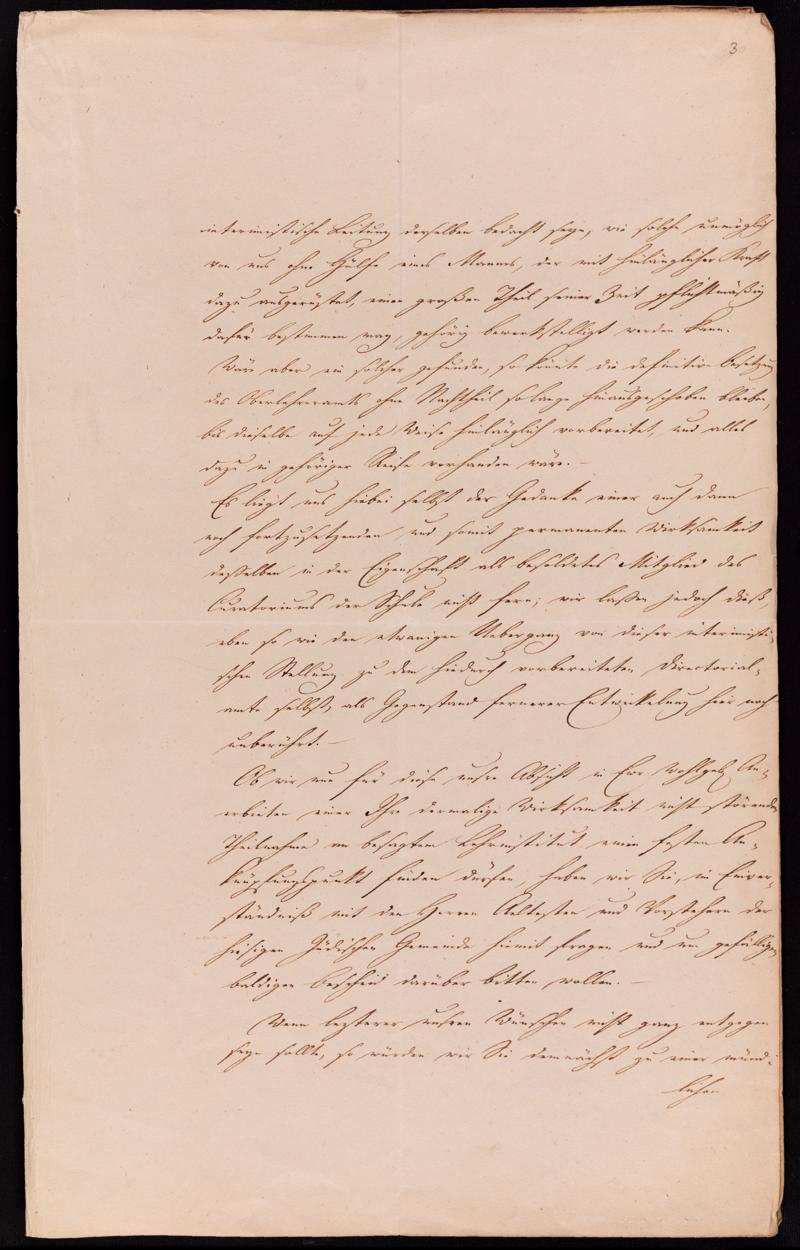 3
interimistische Leitung derselben bedacht seyn, wie solche unmöglich
von uns ohne Hülfe eines Mannes, der mit hinlänglicher Kraft
dazu ausgerüstet, einen großen Theil seiner Zeit pflichtmäßig
dafür bestimmen mag, gehörig bewerkstelligt werden kann.
Wäre aber ein solcher gefunden, so könnte die definitive Besetzung
des Oberlehreramts ohne Nachtheil so lange hinausgeschoben bleiben,
bis dieselbe auf jede Weise hinlänglich vorbereitet, und alles
dazu in gehöriger Reife vorhanden wäre. –
Es liegt uns hiebei selbst der Gedanke einer auch dann
noch fortzusetzenden und somit permanenten Wirksamkeit
desselben in der Eigenschaft als besoldetes Mitglied des
Curatoriums der Schule nicht fern; wir lassen jedoch dieß,
eben so wie den etwanigen Uebergang von dieser interimisti-
schen Stellung zu dem hiedurch vorbereiteten Directorial-
amte selbst, als Gegenstand fernerer Entwickelung hier noch
unberührt. –
Ob wir nun für diese unsre Absicht in Ewr. Wohlgeb. An-
erbieten einer Ihre dermalige Wirksamkeit nicht störenden
Theilnahme am besagten Lehrinstitut einen festen An-
knüpfungspunkt finden dürfen, haben wir Sie, im Einver-
ständniß mit den Herren Aeltesten und Vorstehern der
hiesigen Jüdischen Gemeinde hiemit fragen und um gefälligen
baldigen Bescheid darüber bitten wollen. –
Wenn lezterer unsren Wünschen nicht ganz entgegen
seyn sollte, so würden wir Sie demnächst zu einer münd-
lichen